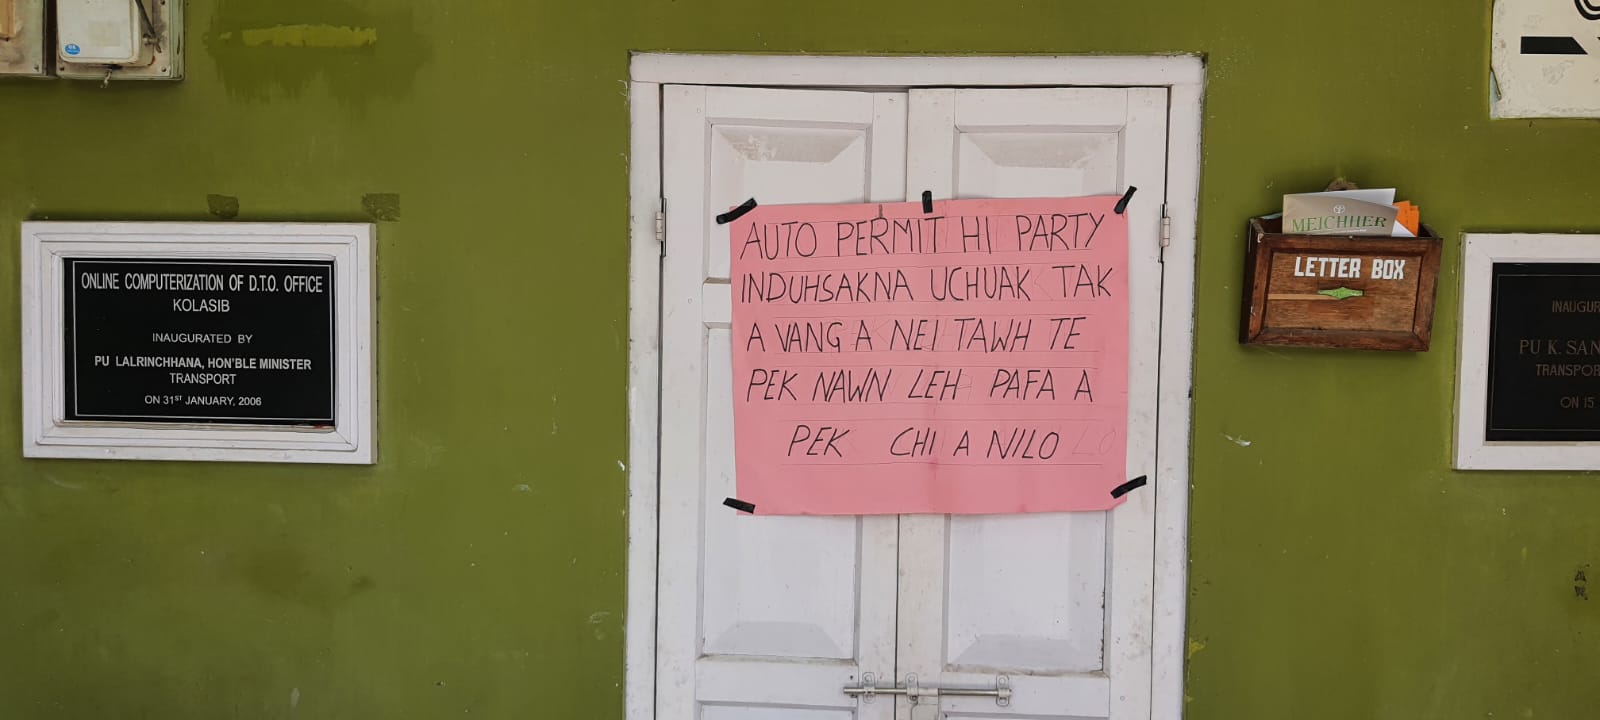 ONLINE COMPUTERIZATION OF D.T.O. OFFICE
KOLASIB
INAUGURATED BY
PU LALRINCHHANA, HON'BLE MINISTER
TRANSPORT
ON 31ST JANUARY, 2006
AUTO PERMIT HI PARTY
INDUHSAKNA UCHUAK TAK
A VANG A NEI TAWH TE
PEK NAWN LEH PAFA A
PEK CHI A NILO
MEICHHER
LETTER BOX
PU K. SAN
ON 15